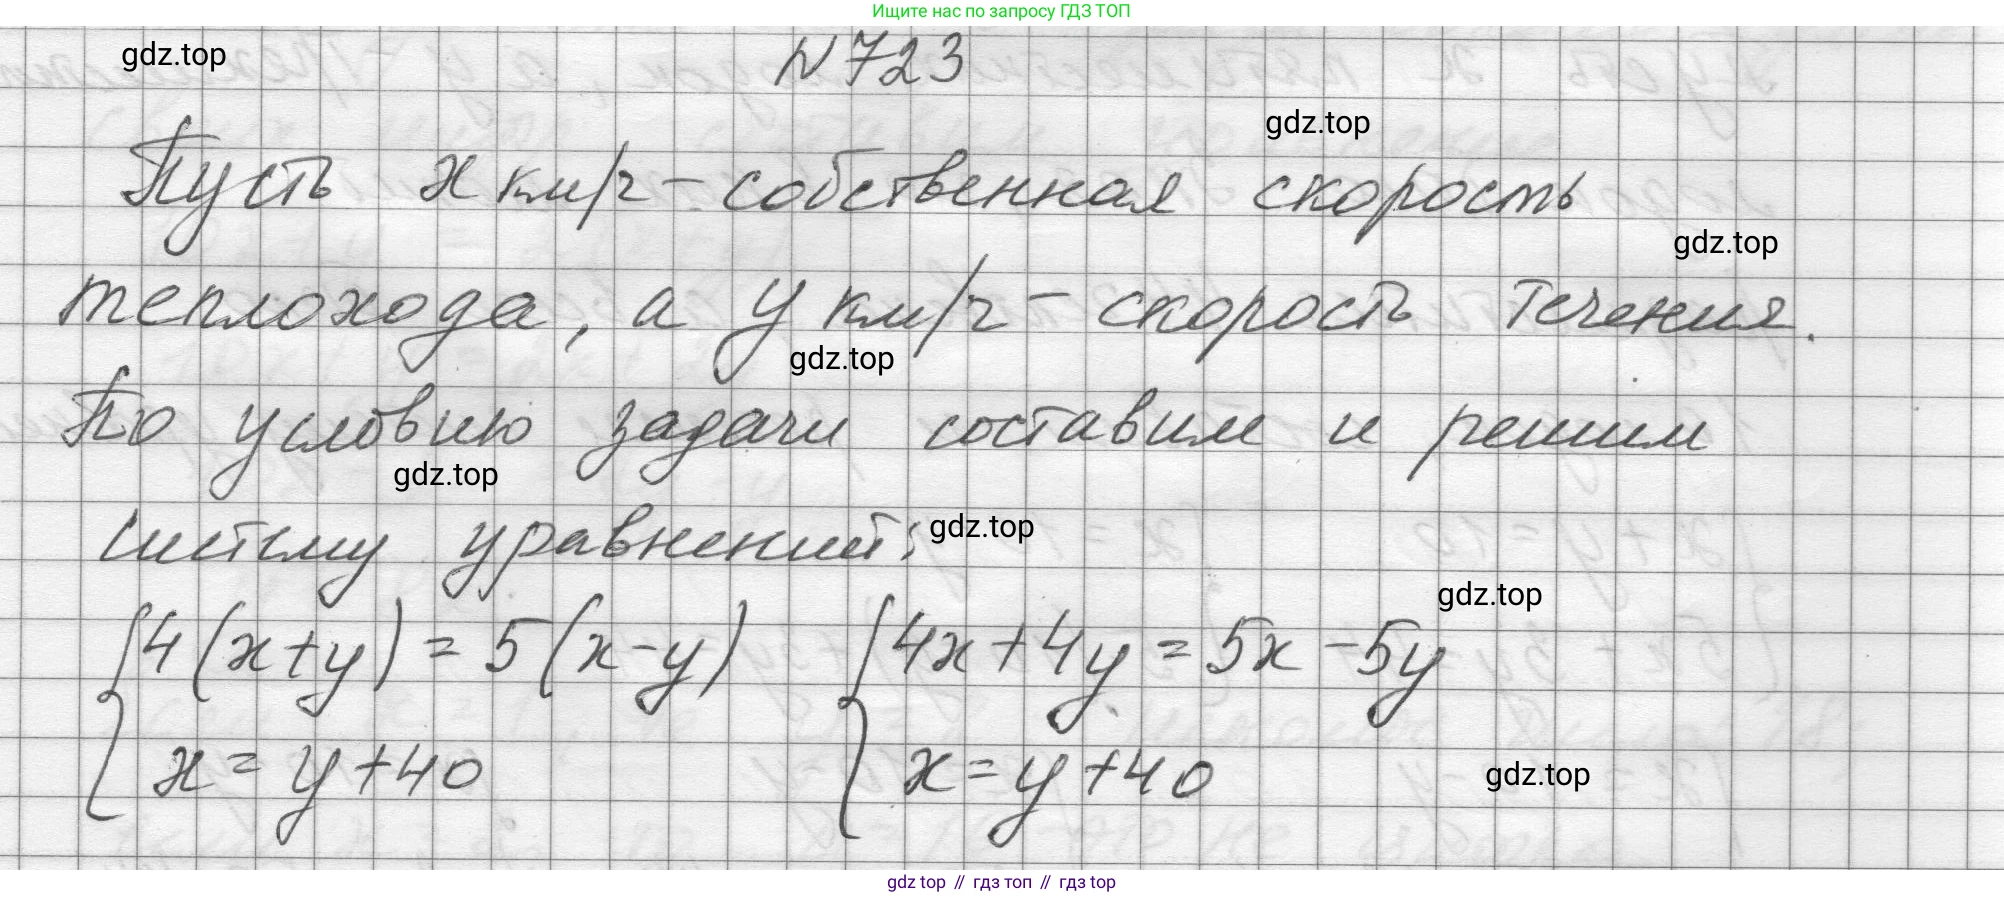 Ищите нас по запросу ГДЗ ТОП
gdz.top
N 723
gdz.top
Пусть x км/ч - собственная скорость
gdz.top
теплохода, а y км/ч - скорость течения.
gdz.top
По условию задачи составим и решим
gdz.top
систему уравнений:
gdz.top
gdz.top
{4(x+y) = 5(x-y) {4x+4y = 5x-5y
x = y+40 x = y+40
gdz.top
gdz top // гдз топ // гдз top